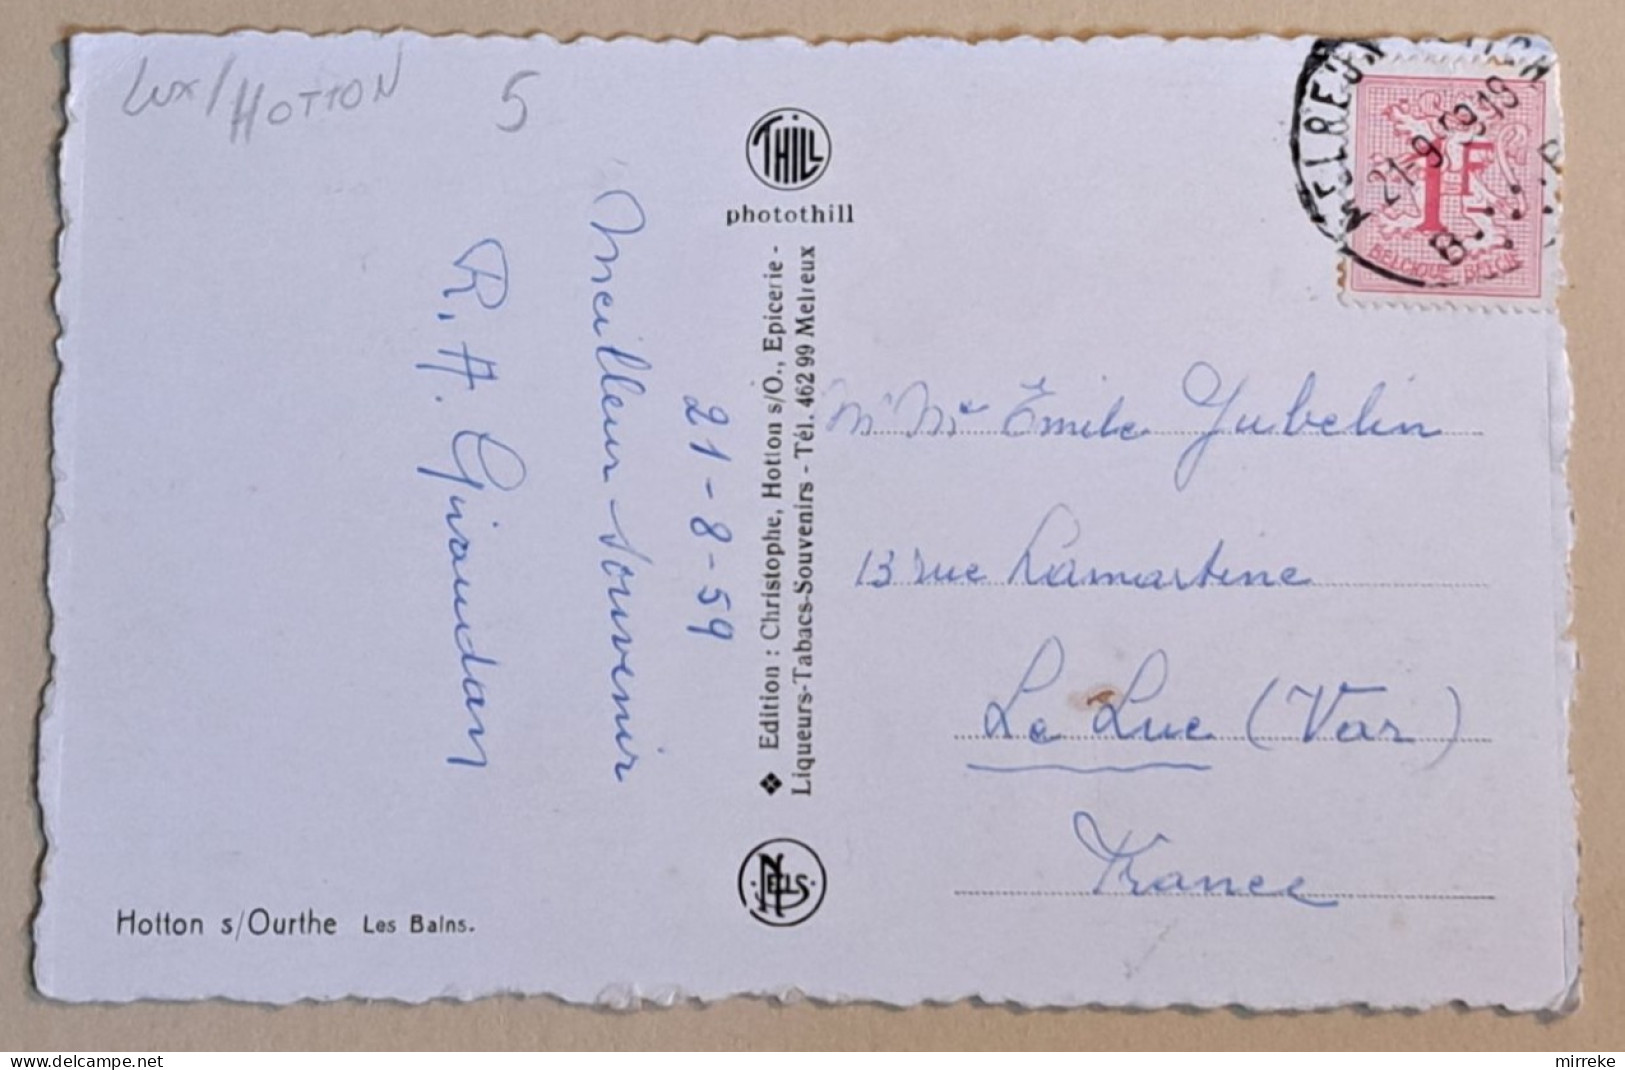 Lux/HOTTON
5
THILL
photothill
Meilleur souvenir
21-8-59
R. H. Giraudan
❖ Edition : Christophe, Hotton s/O., Epicerie -
Liqueurs-Tabacs-Souvenirs - Tél. 462 99 Melreux
NELS
Hotton s/Ourthe Les Bains.
MELREUX
21-9-59 19
B
1F
BELGIQUE-BELGIE
Mr Me Emile Jubelin
13 rue Lamartine
Le Luc (Var)
France
mirreke
delcampe.net